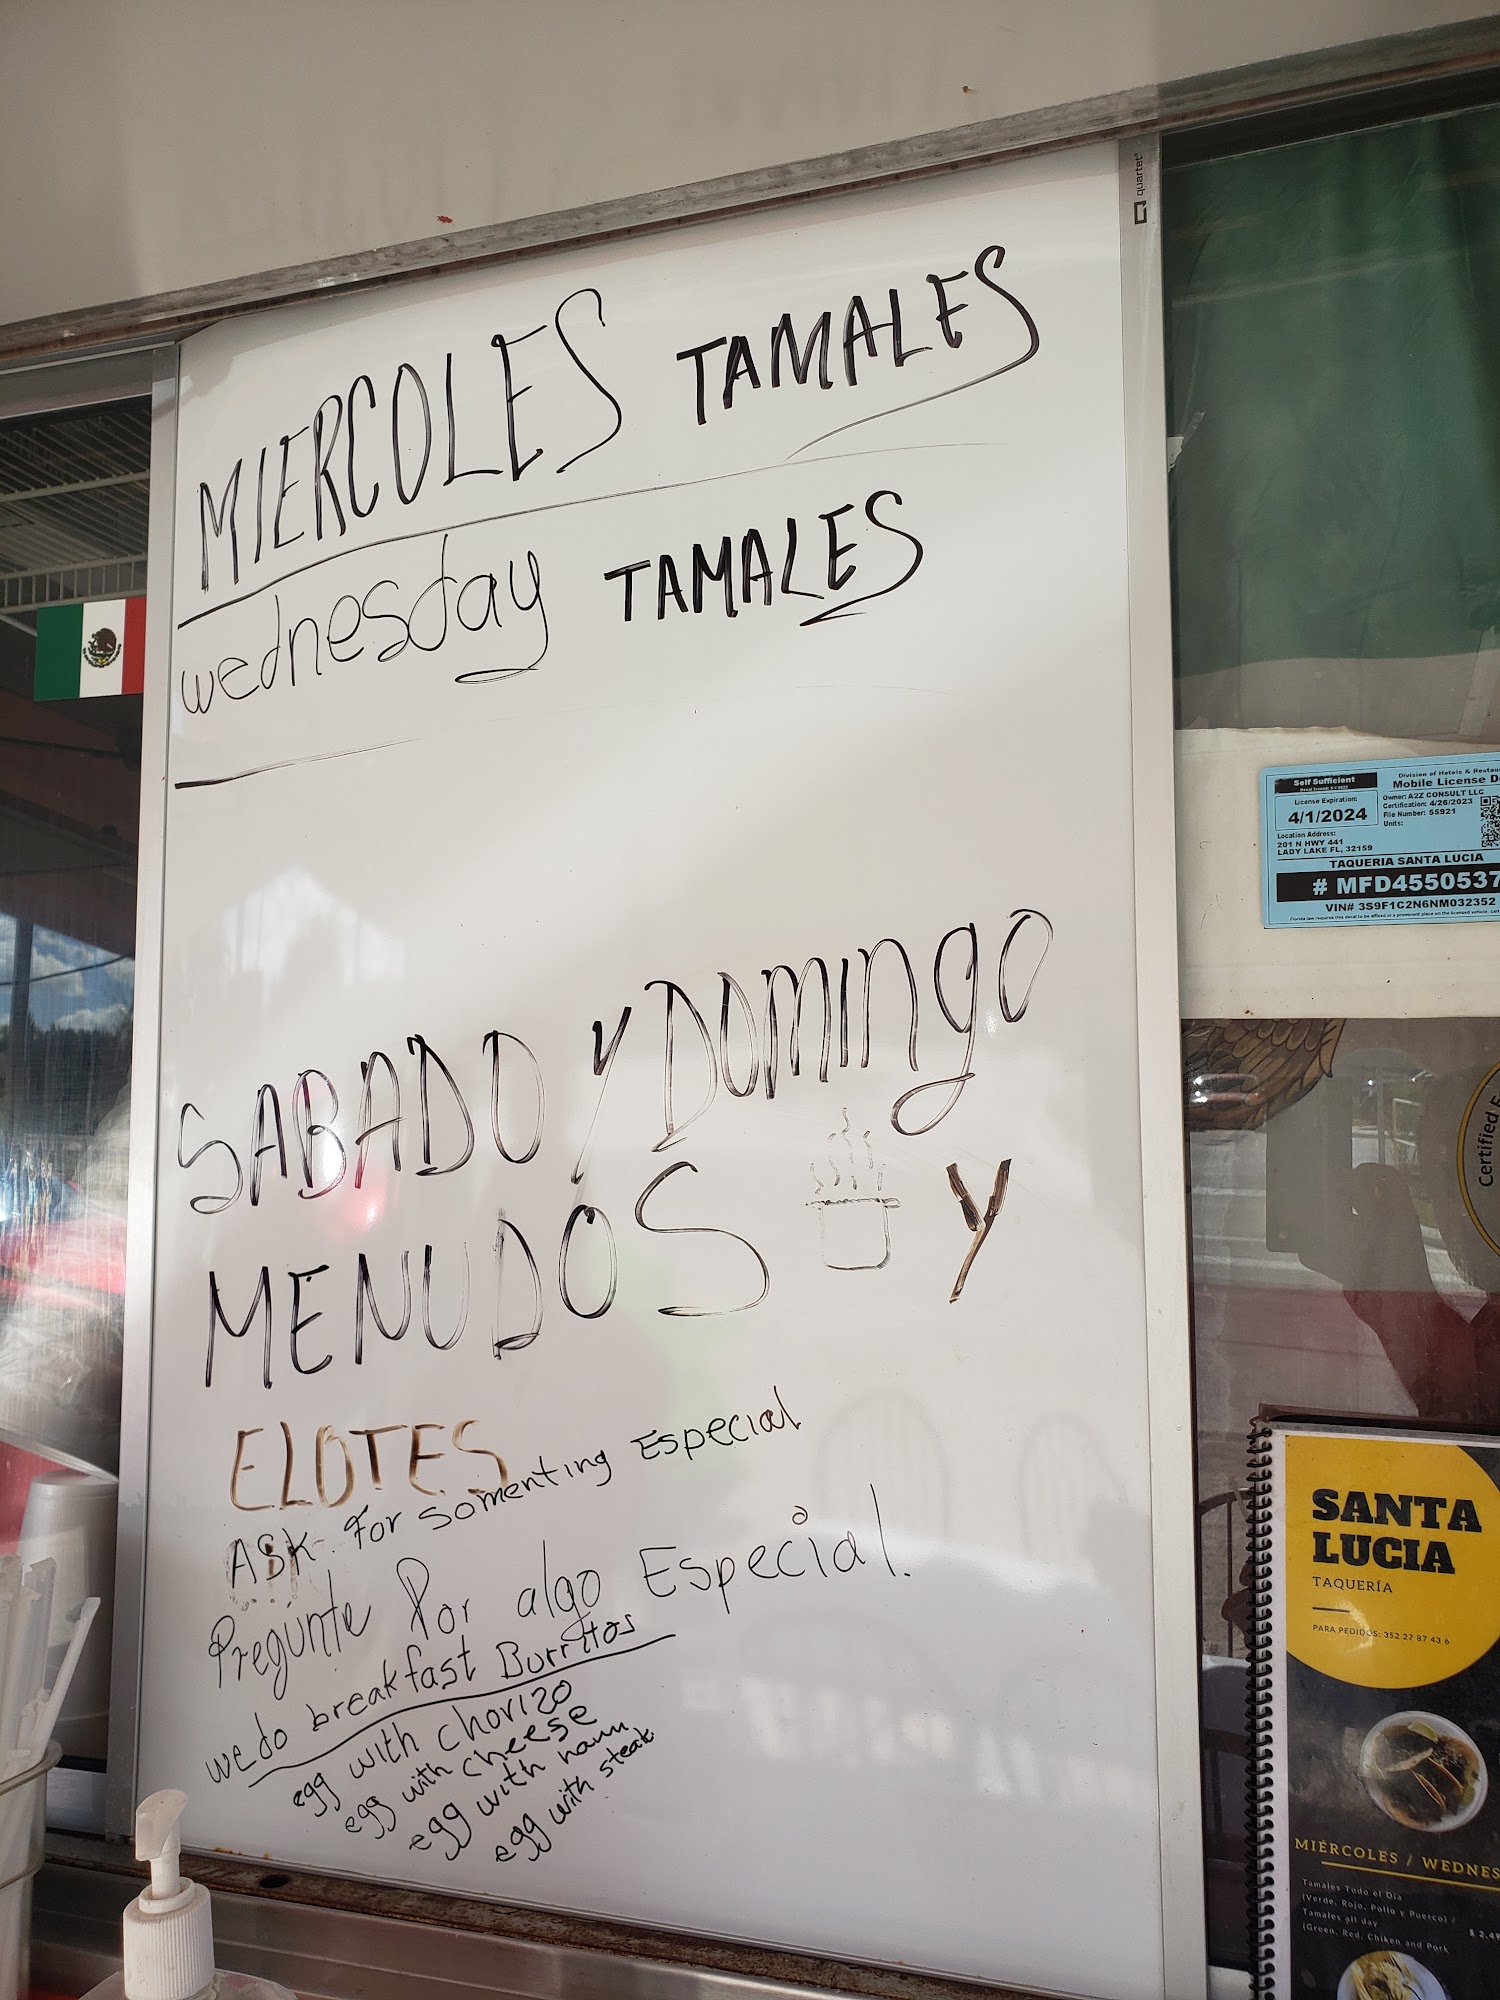 quartet
MIERCOLES TAMALES
wednesday TAMALES
SABADO Y DOMINGO
MENUDOS Y
ELOTES
ASK For somenting Especial
Pregúnte Por algo Especial.
we do breakfast Burritos
egg with chorizo
egg with cheese
egg with ham
egg with steak
Self Sufficient
License Expiration:
4/1/2024
Division of Hotels & Restau
Mobile License De
Owner: A2Z CONSULT LLC
Certification: 4/26/2023
File Number: 55921
Units:
Location Address:
201 N HWY 441
LADY LAKE FL, 32159
TAQUERIA SANTA LUCIA
# MFD4550537
VIN# 3S9F1C2N6NM032352
Certified
SANTA
LUCIA
TAQUERÍA
PARA PEDIDOS: 352 27 87 43 6
MIÉRCOLES / WEDNES
Tamales Todo el Dia
(Verde, Rojo, Pollo y Puerco) /
Tamales all day
(Green, Red, Chiken and Pork
$ 2,49